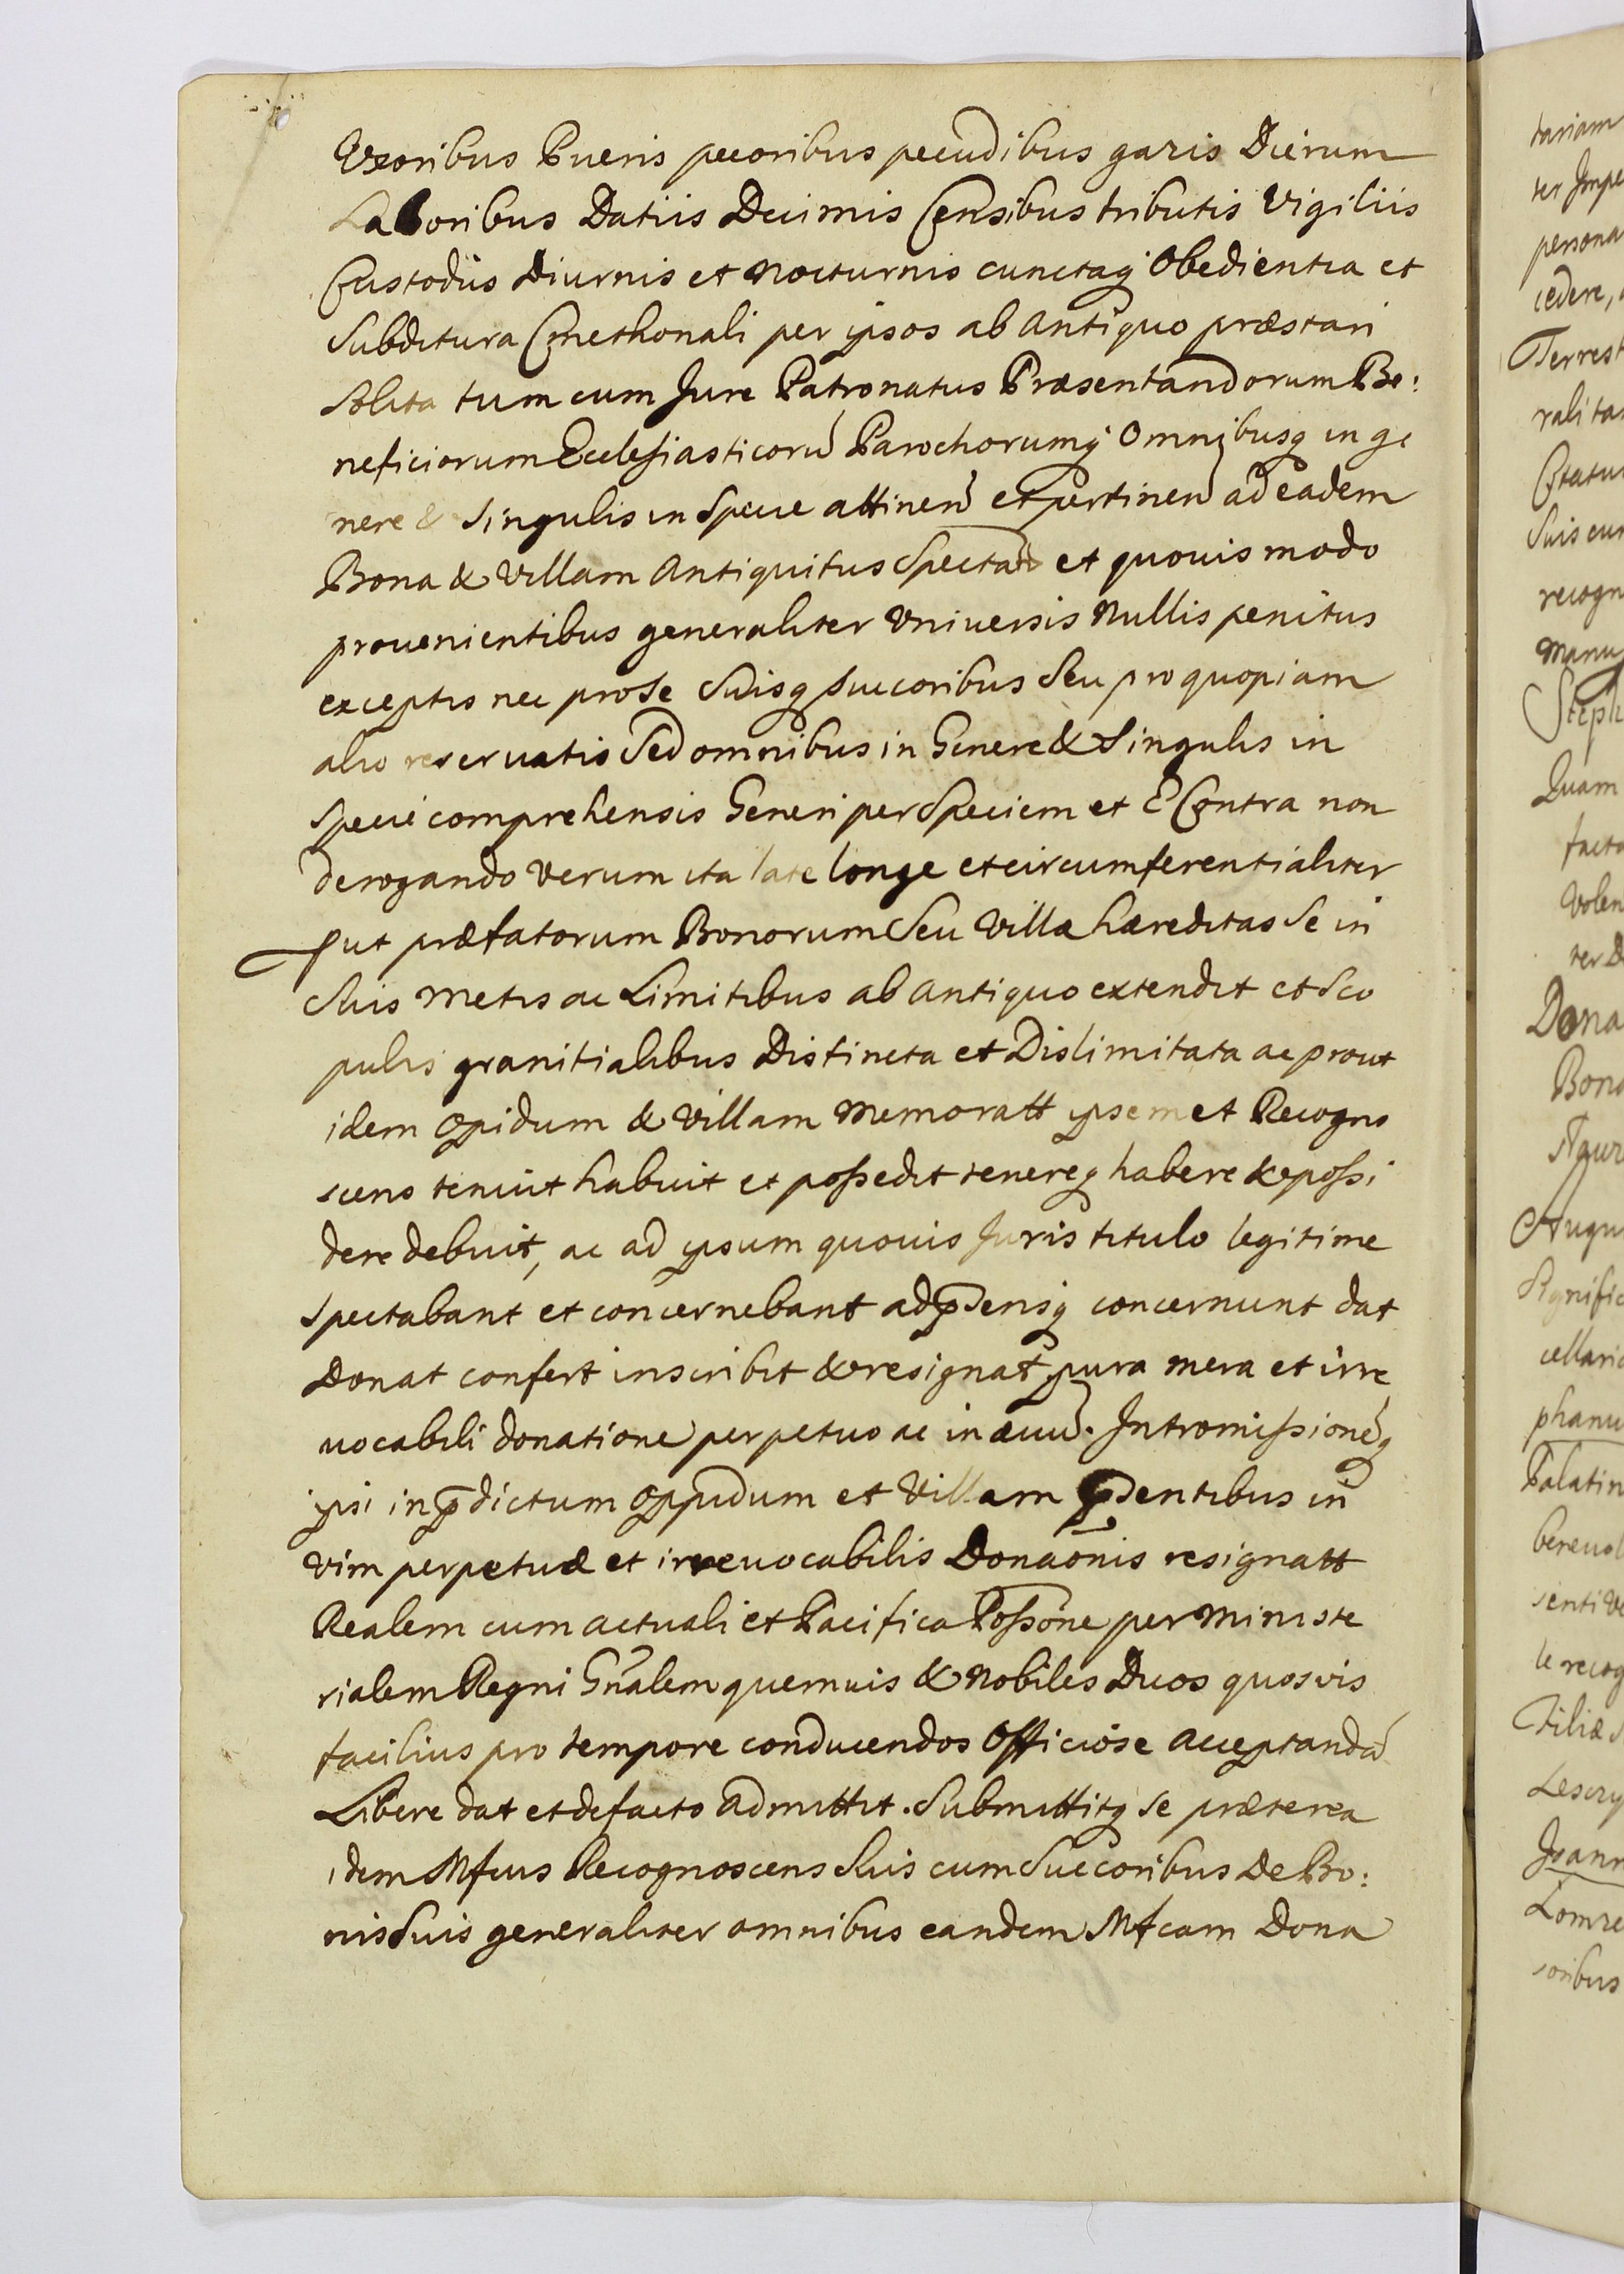 Uxoribus Pueris pecoribus pecudibus gazis Dierum
Laboribus Datiis Decimis Censibus tributis Vigiliis
Custodiis Diurnis et Nocturnis cunctaq Obedientia et
Subditura Cmethonali per ipsos ab Antiquo præstari
Solita tum cum Jure Patronatus Præsentandorum Be:
neficiorum Ecclesiasticorū Parochorumq Omnibusq in ge
nere & singulis in Specie attinen̄ et pertinen̄ ad eadem
Bona & Villam Antiquitus Spectan̄ et quouis modo
prouenientibus generaliter Vniuersis Nullis penitus
exceptis nec pro se Suisq succoribus Seu pro quopiam
alio reseruatis Sed omnibus in Genere & Singulis in
Specie comprehensis Generi per Speciem et E Contra non
derogando Verum ita late longe et circumferentialiter
put præfatorum Bonorum Seu Villæ hæreditas Se in
Suis Metis ac Limitibus ab Antiquo extendit et Sco
pulis granitialibus Distincta et Dislimitata ac prout
idem Opidum & Villam Memoratt ipsemet Recogno
scens tenuit habuit et possedit tenereq habere & possi
dere debuit, ac ad ipsum quouis Juris titulo legitime
Spectabant et concernebant ad p̄sensq concernunt dat
Donat confert inscribit & resignat pura mera et irre
uocabili donatione perpetuo ac in æuū. Intromissionēq
ipsi in p̄dictum Oppidum et Villam p̄sentibus in
vim perpetuæ et irreuocabilis Donaōnis resignatt
Realem cum actuali et Pacifica Possōne per Ministe
rialem Regni Gn̄alem quemuis & Nobiles Duos quosvis
facilius pro tempore conducendos Officiose Acceptandā
Libere dat et defacto Admittit. Submittitq se præterea
idem Mfcus Recognoscens Suis cum Succoribus De Bo:
nis Suis generaliter omnibus eandem Mfcam Dona
tariam
persona
cedere,
ralitas
recogn
Quam
facto
Volen
Dona
Bona
cellaric
phanu
Palatin
beneuol
le recog
Filiæ
Joann
soribus